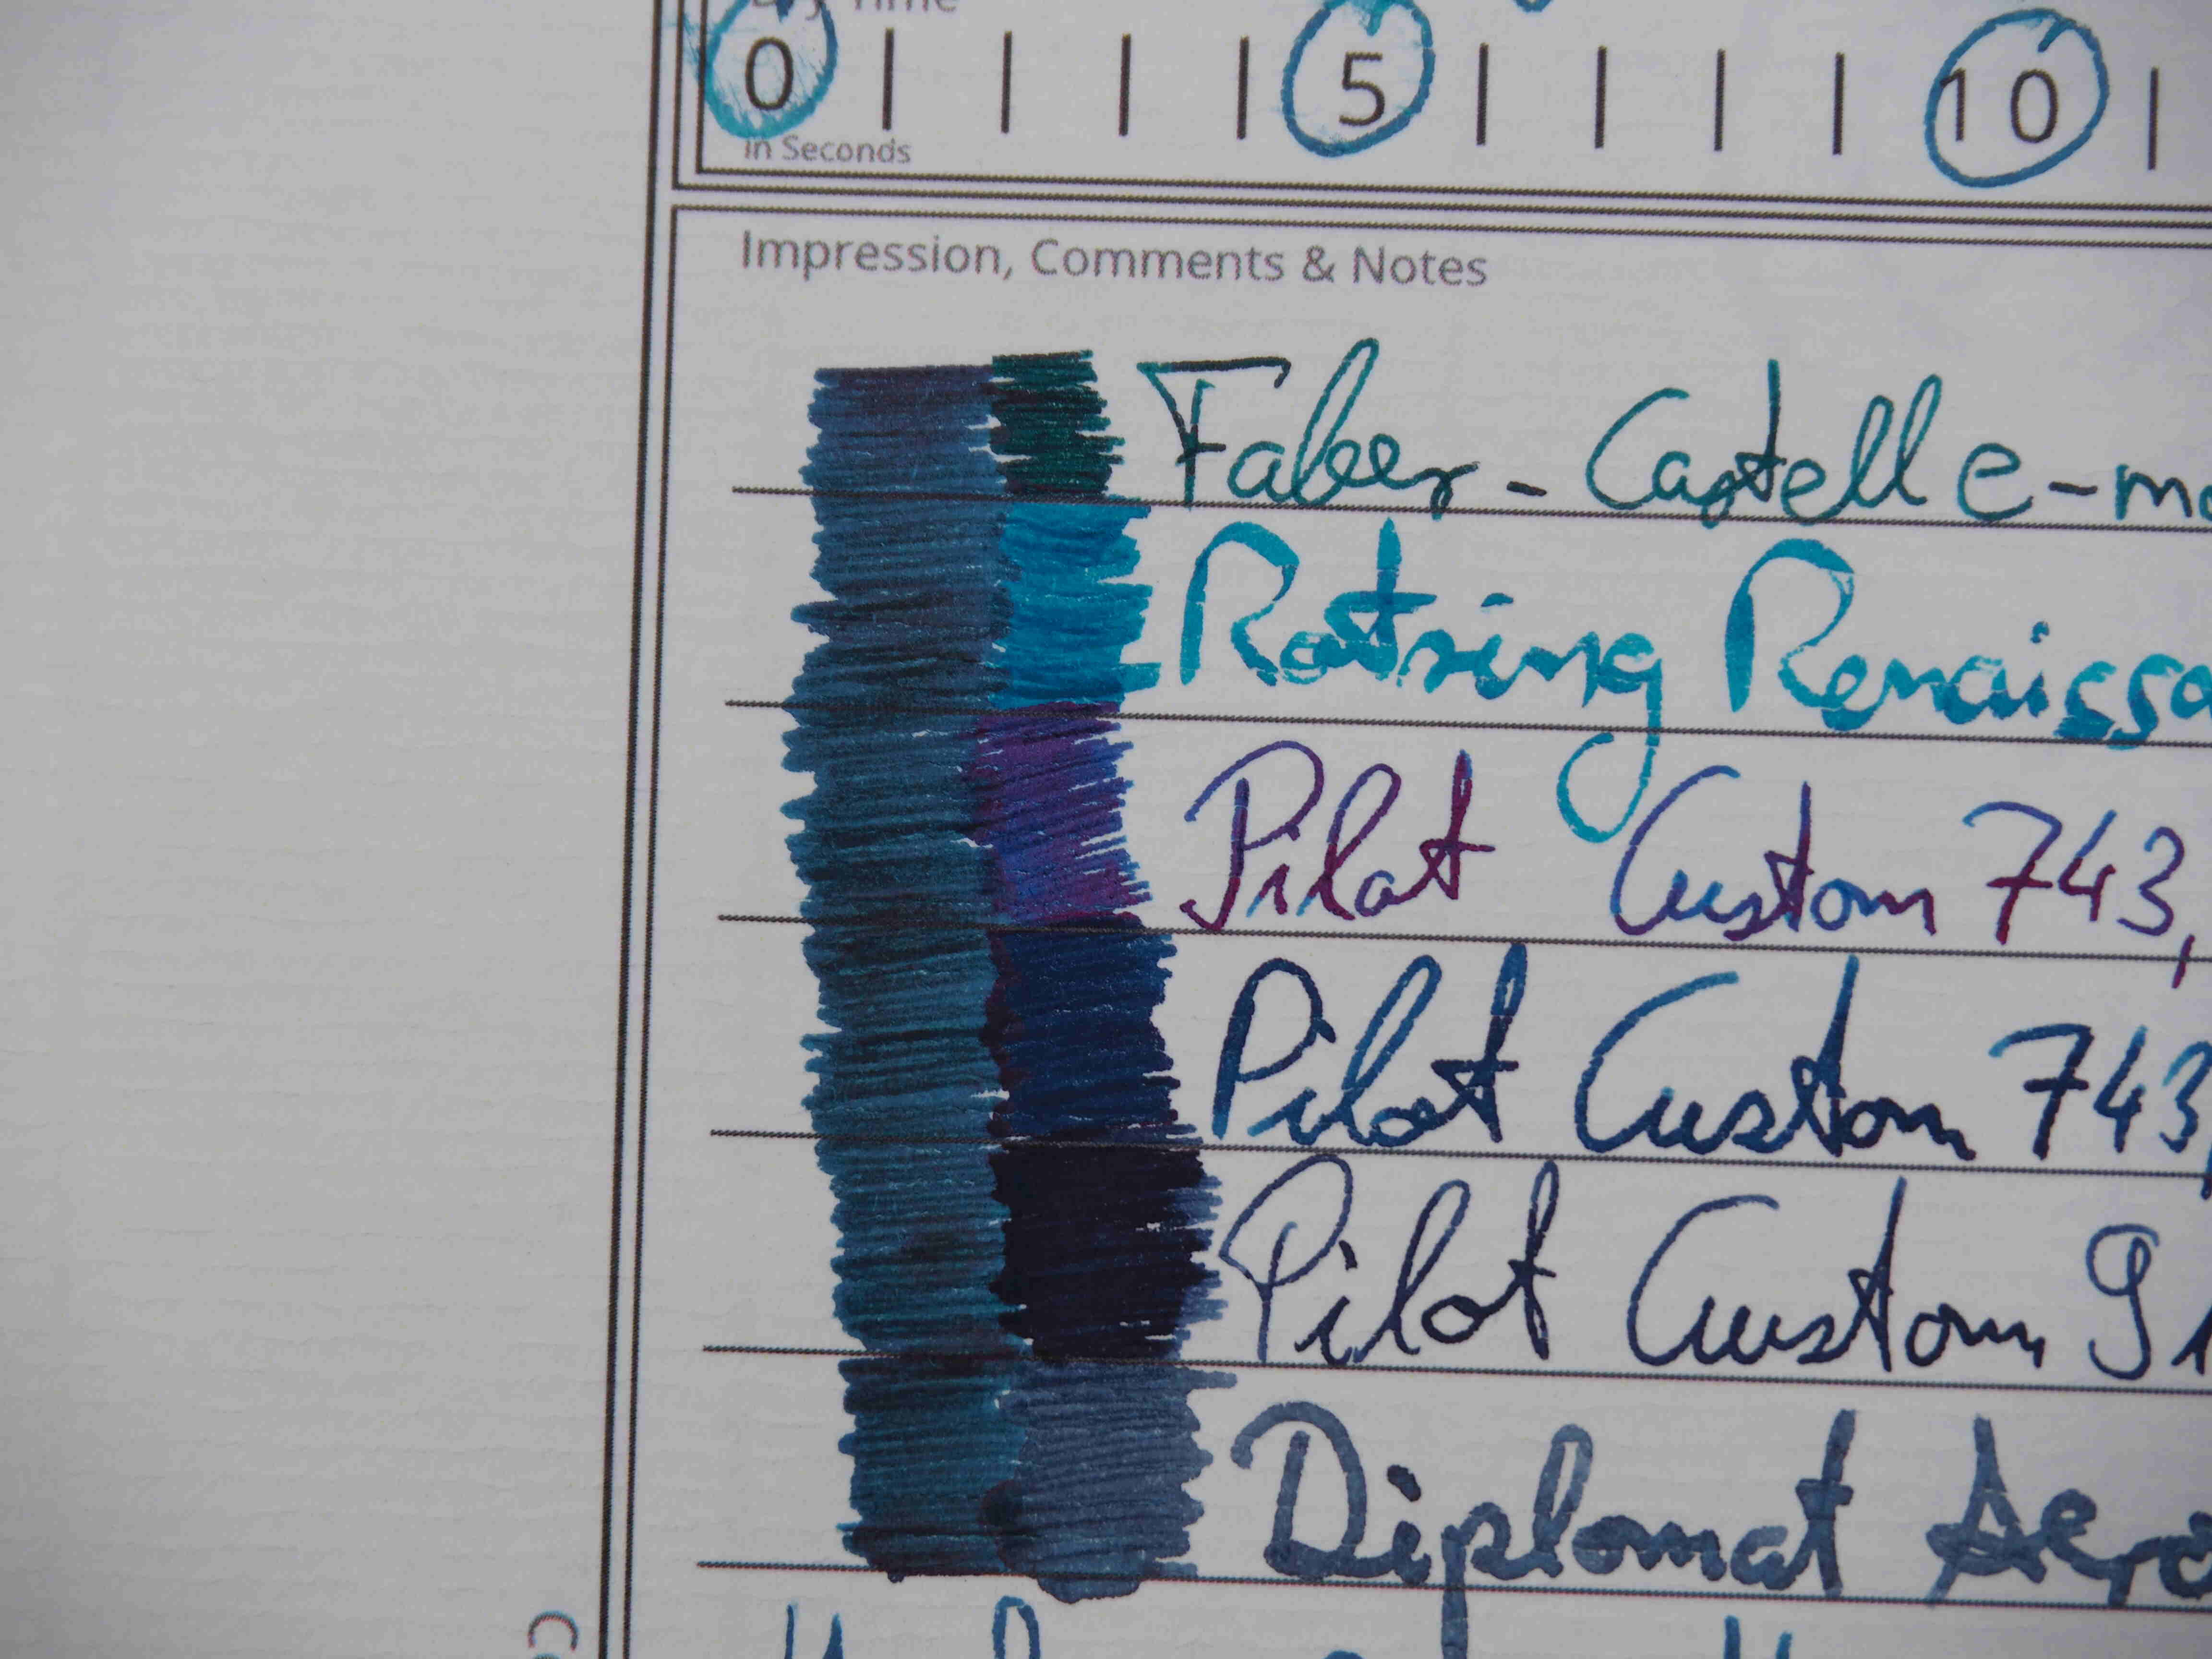 Dry Time
0 5 10
in Seconds
Impression, Comments & Notes
Faber-Castell e-mo
Rotring Renaissa
Pilot Custom 743,
Pilot Custom 743,
Pilot Custom 91
Diplomat Aero